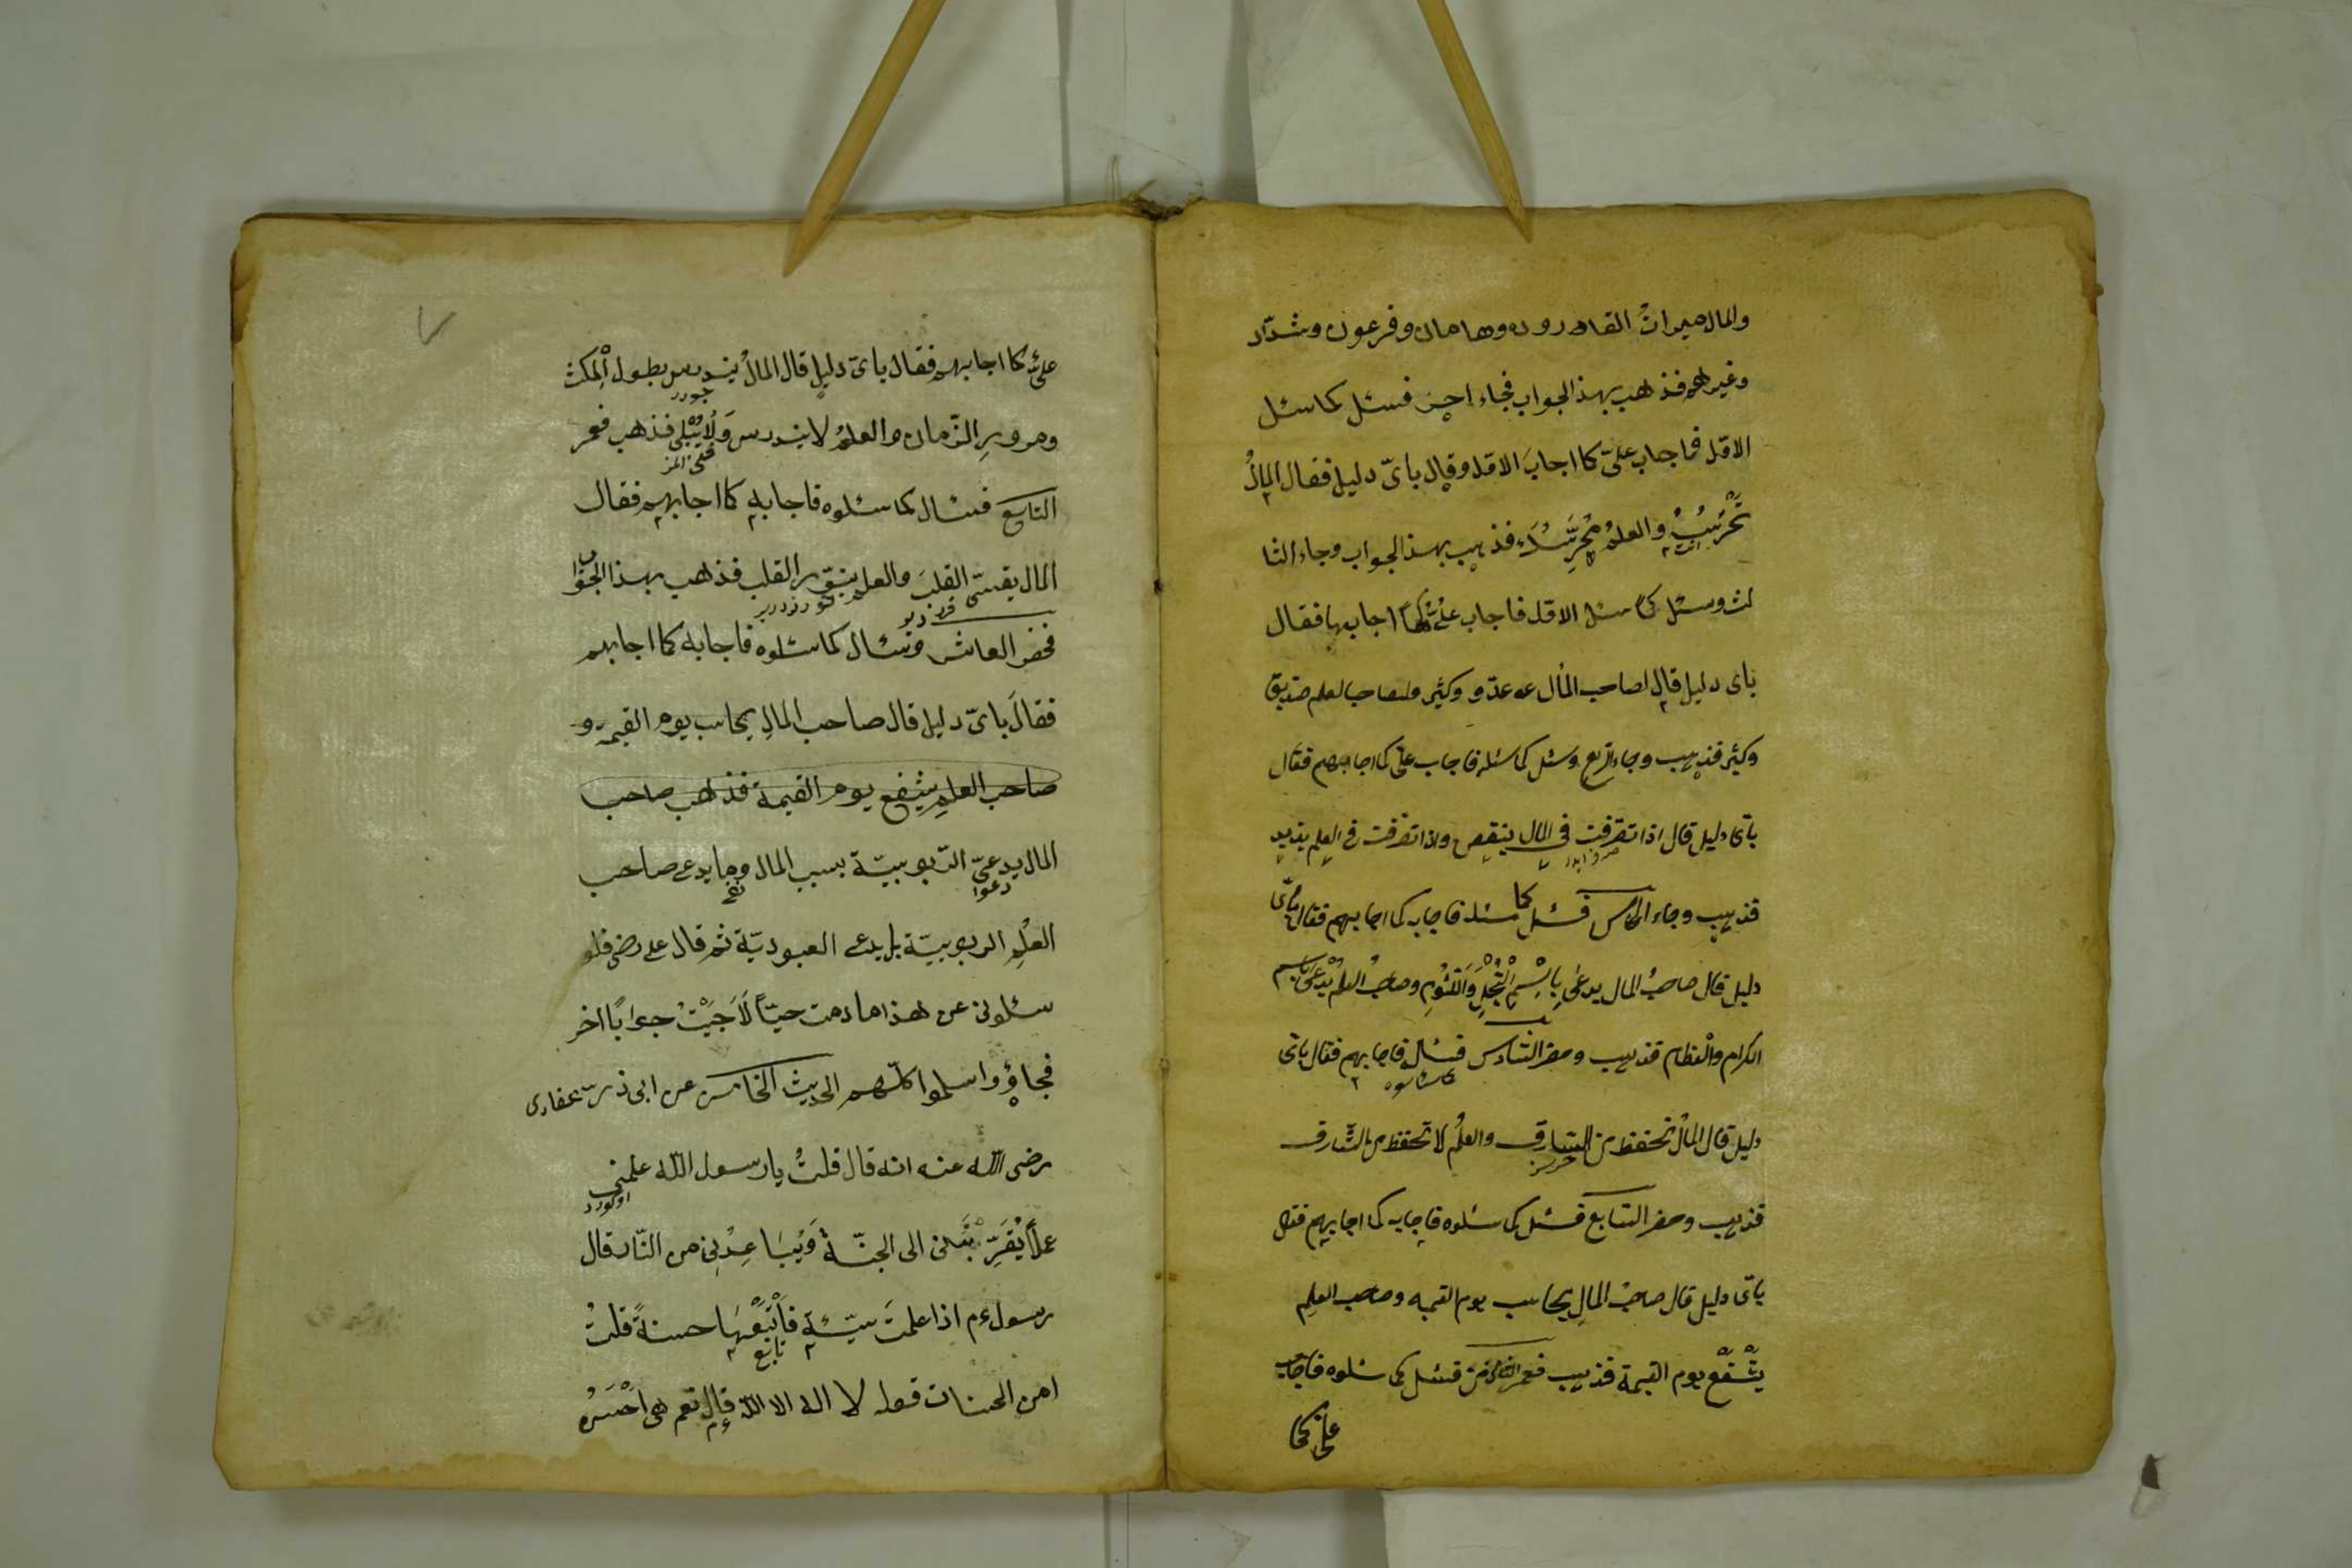 والمال ميراث القادرون وهامان وفرعون وشدّاد
وغيرهم فذهب بهذالجواب فجاء اخر فسئل كما سئل
الاوّل فاجاب علىّ كما اجاب الاوّل وقال باىّ دليل فقال المالُ
تَحْرُسُهُ والعلمُ يحرسك فذهب بهذالجواب وجاء الثا
لث وسئل كما سئل الاوّل فاجاب علىّ كما اجابها فقال
باى دليل قال لصاحب المال عدوّ وكثير ولصاحب العلم صديق
وكثير فذهب وجاء الرابع وسئل كما سئله فاجاب علىّ كما اجابهم فقال
باىّ دليل قال اذا تصرّفت فى المال ينقص واذا تصرّفت فى العلم يزيد
فذهب وجاء الخامس فسئل كما سئله فاجابه كما اجابهم فقال باىّ
دليل قال صاحبُ المال يدعى بِاسْمِ الْبُخْلِ وَاللَّئُومِ وصاحبُ العلمِ يُدْعَى باسم
الكرام والْعظام فذهب وحضر السّادس فسئل فاجابهم فقال باىّ
كما سئلوه
دليل قال المالُ تحفظ من السّارق والعلمُ لا تحفظ من السّارق
فذهب وحضر السّابع فسئل كما سئلوه فاجابه كما اجابهم فقال
باىّ دليل قال صاحبُ المالِ يحاسب يوم القيمه وصاحب العلمِ
يشْفعْ يوم القيمة فذهب فحضر الثامن فسئل كما سئلوه فاجاب
علىّ كما
علىّ كما اجابهم فقال باىّ دليلٍ قال المالُ يندرس بطول الْمكث
ومرورِ الزّمان والعلمُ لا يندرس وَلَايُبْلى فذهب فحضر
التاسع فسئال كما سئلوه فاجابه كما اجابهم فقال
المال يقسّى القلبَ والعلم ينوّر القلب فذهب بهذا الجواب
فحضر العاشر وسئال كما سئلوه فاجابه كما اجابهم
فقالَ باىّ دليل قال صاحب المالِ يحاسب يوم القيمة و
صاحب العلمِ يشفع يوم القيمة فذهب صاحب
المال يدعىّ الرّبوبيّة بسبب المال وما يدعى صاحب
دعوا نفى
العلْمِ الربوبيّة بل يدعى العبوديّة ثم قال على رضى فلو
سئلونى عن هذا ما دمت حيّاً لَاَجَبْتُ جواباً اخر
فجاؤو واسلموا كلّهم الحديث الخامس عن ابى ذرّ غفارى
رضى اللّه عنه انه قال قلتُ يا رسول اللّه علمنى
عملاً يُقَرِّبُنى الى الجنّة وَيُبَاعِدُنِى من النّار قال
رسول ءم اذا علمتَ سيّئةٍ فَاَتْبَعْهَا حسنةً قلتُ
تابع
امن الحسنات قول لا اله الا اللّه قال نعم هى احْسَنُ